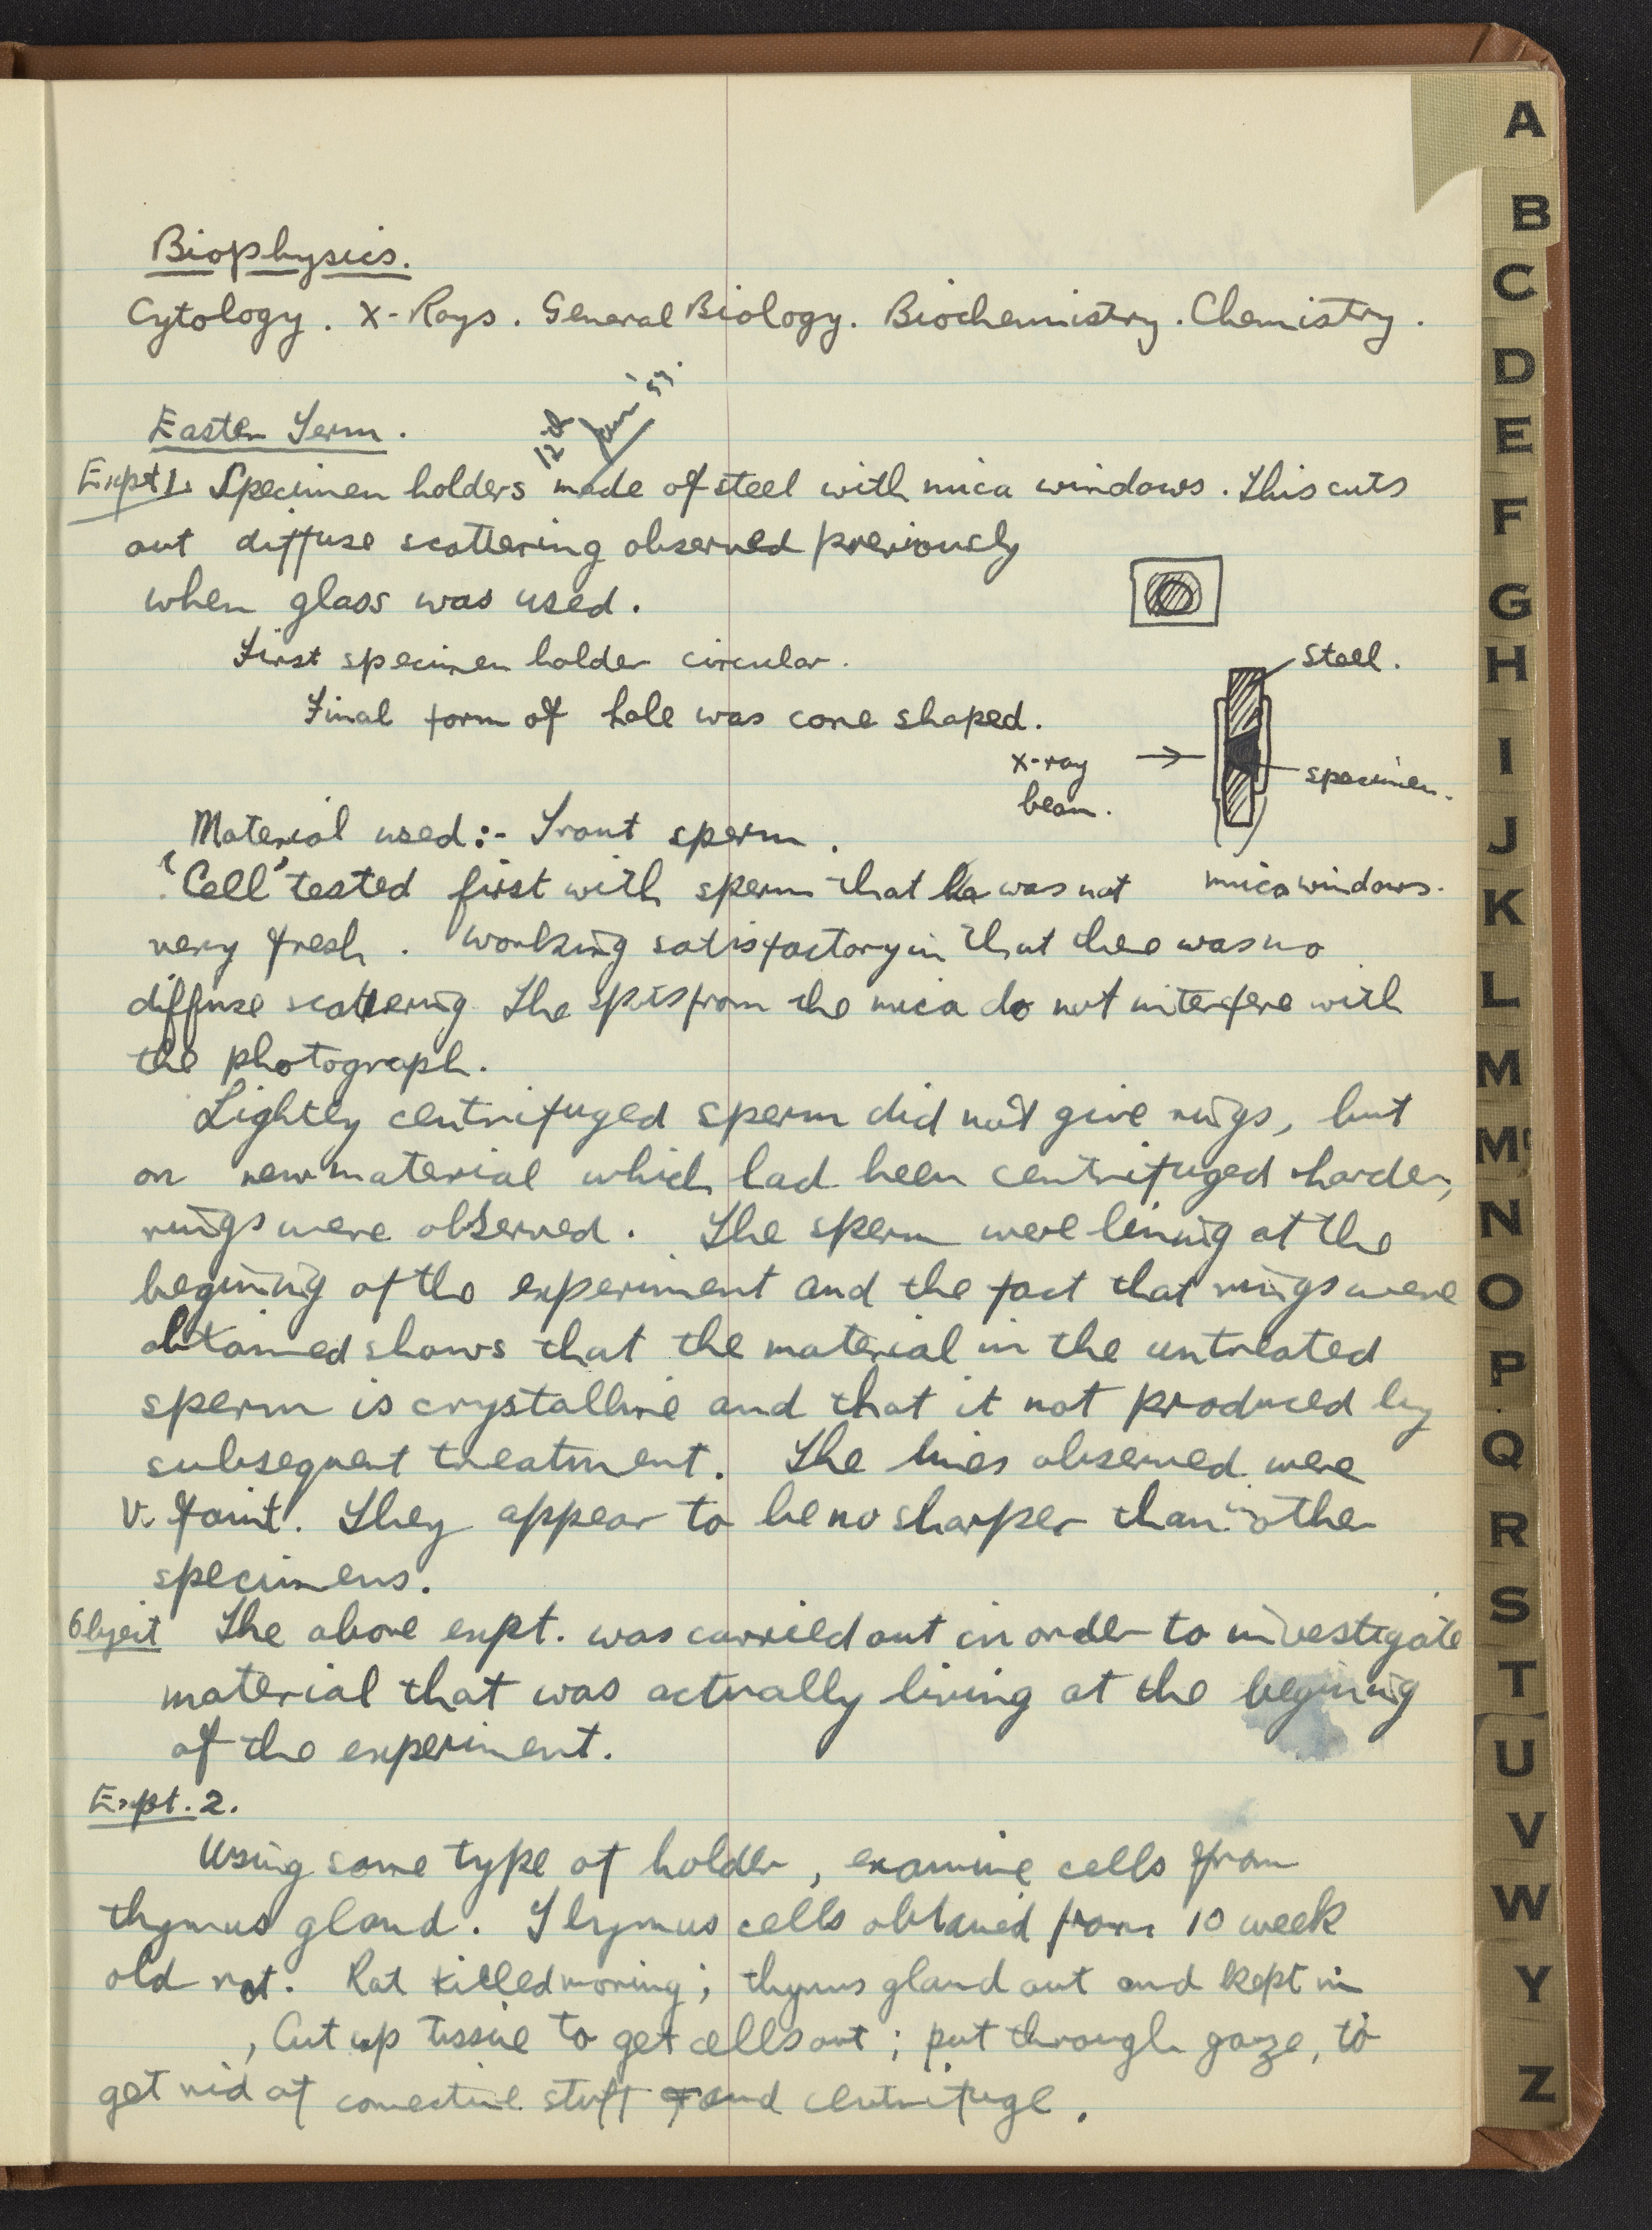 Biophysics.
Cytology. X-Rays. General Biology. Biochemistry. Chemistry.
Easter Term.
12th Jan '53.
Expt 1. Specimen holders made of steel with mica windows. This cuts
out diffuse scattering observed previously
when glass was used.
First specimen holder circular.
Final form of hole was cone shaped.
Steel.
x-ray
beam.
specimen.
mica windows.
Material used:- Trout sperm.
"Cell" tested first with sperm that was not
very fresh. Working satisfactory in that thee was no
diffuse scattering The spots from the mica do not interfere with
the photograph.
Lightly centrifuged sperm did not give rings, but
on new material which had been centrifuged harder,
rings were observed. The sperm were living at the
begining of the experiment and the fact that rings were
obtained shows that the material in the untreated
sperm is crystalline and that it not produced by
subsequent treatment. The lines observed were
v. faint. They appear to be no sharper than in other
specimens.
Object The above expt. was carried out in order to investigate
material that was actually living at the begining
of the experiment.
Expt. 2.
Using same type of holder, examine cells from
thymus gland. Thymus cells obtained from 10 week
old rat. Rat killed morning; thymus gland out and kept in
, Cut up tissue to get cells out; put through gauze, to
get rid of connective stuff and centrifuge.
A
B
C
D
E
F
G
H
I
J
K
L
M
Mc
N
O
P
Q
R
S
T
U
V
W
Y
Z